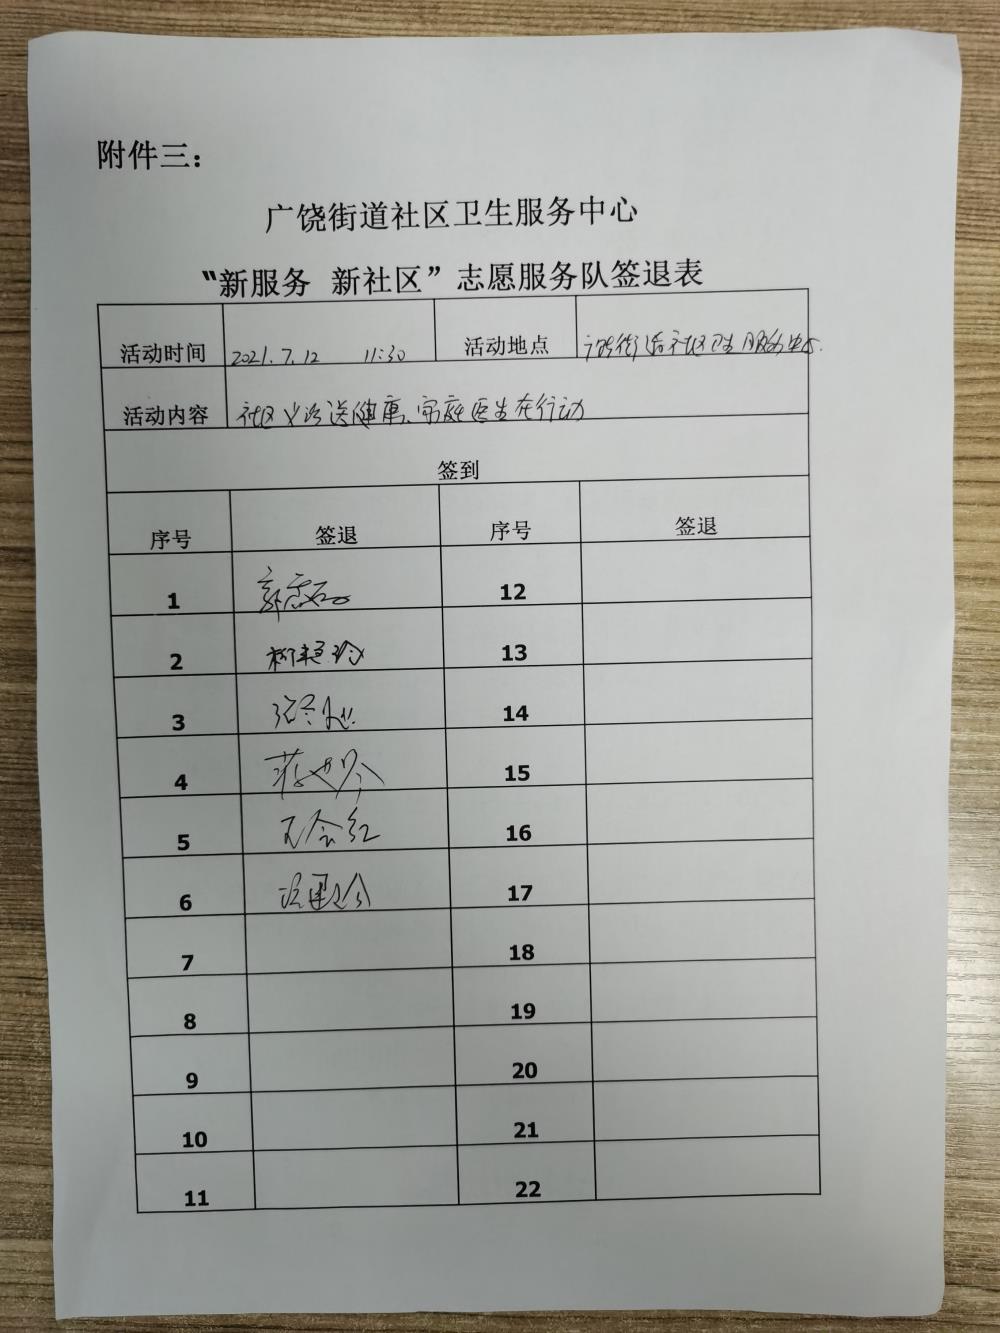 附件三：
广饶街道社区卫生服务中心
“新服务 新社区”志愿服务队签退表
活动时间 2021.7.12 11:30 活动地点 广饶街道社区卫生服务中心.
活动内容 社区义诊送健康、家庭医生在行动
签到
序号 签退 序号 签退
1 12
2 13
3 14
4 15
5 16
6 17
7 18
8 19
9 20
10 21
11 22